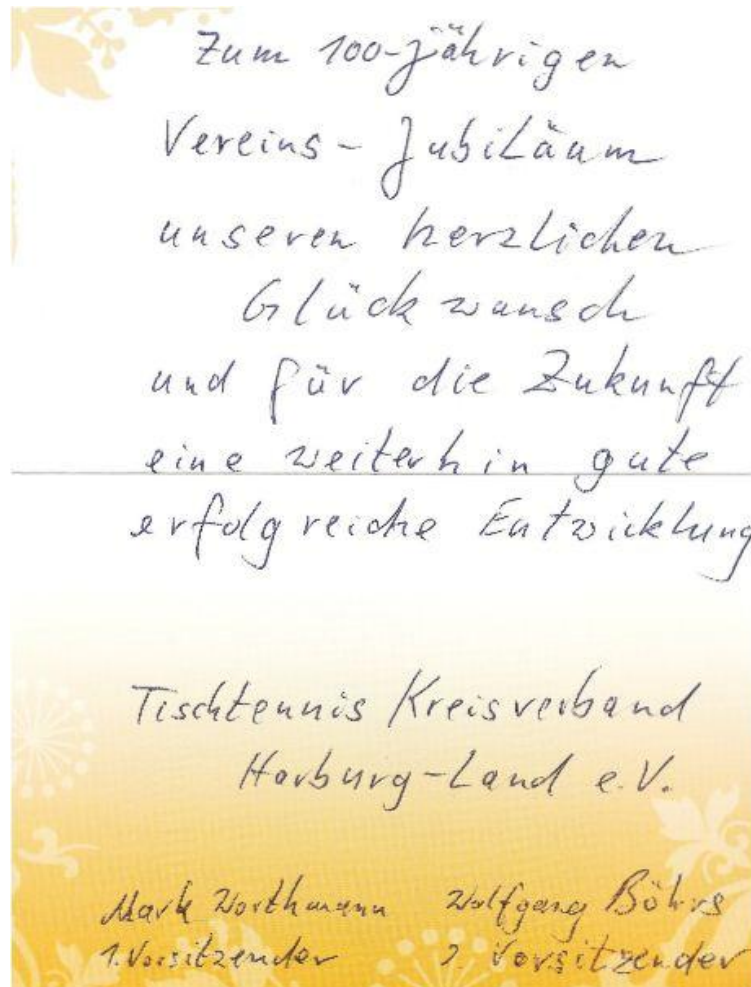 Zum 100-jährigen
Vereins-Jubiläum
unseren herzlichen
Glückwunsch
und für die Zukunft
eine weiterhin gute
erfolgreiche Entwicklung
Tischtennis Kreisverband
Harburg-Land e.V.
Mark Worthmann Wolfgang Böhrs
1. Vorsitzender 2. Vorsitzender